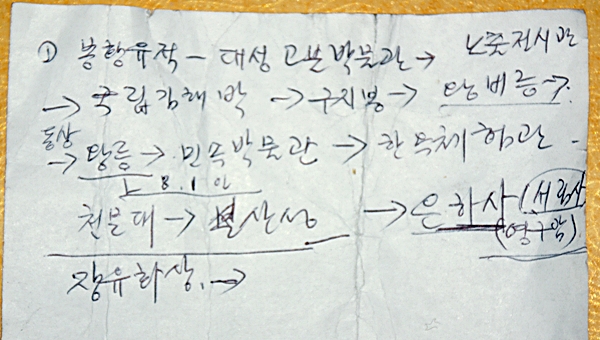 ① 봉황유적 - 대성고분박물관 → 노출전시관
→ 국립김해박 → 구지봉 → 왕비릉 →
동상
→ 왕릉 → 민속박물관 → 한옥체험관
8.1
천문대 → 산성 → 은하사 (서림사
(영구암)
장유화상 →